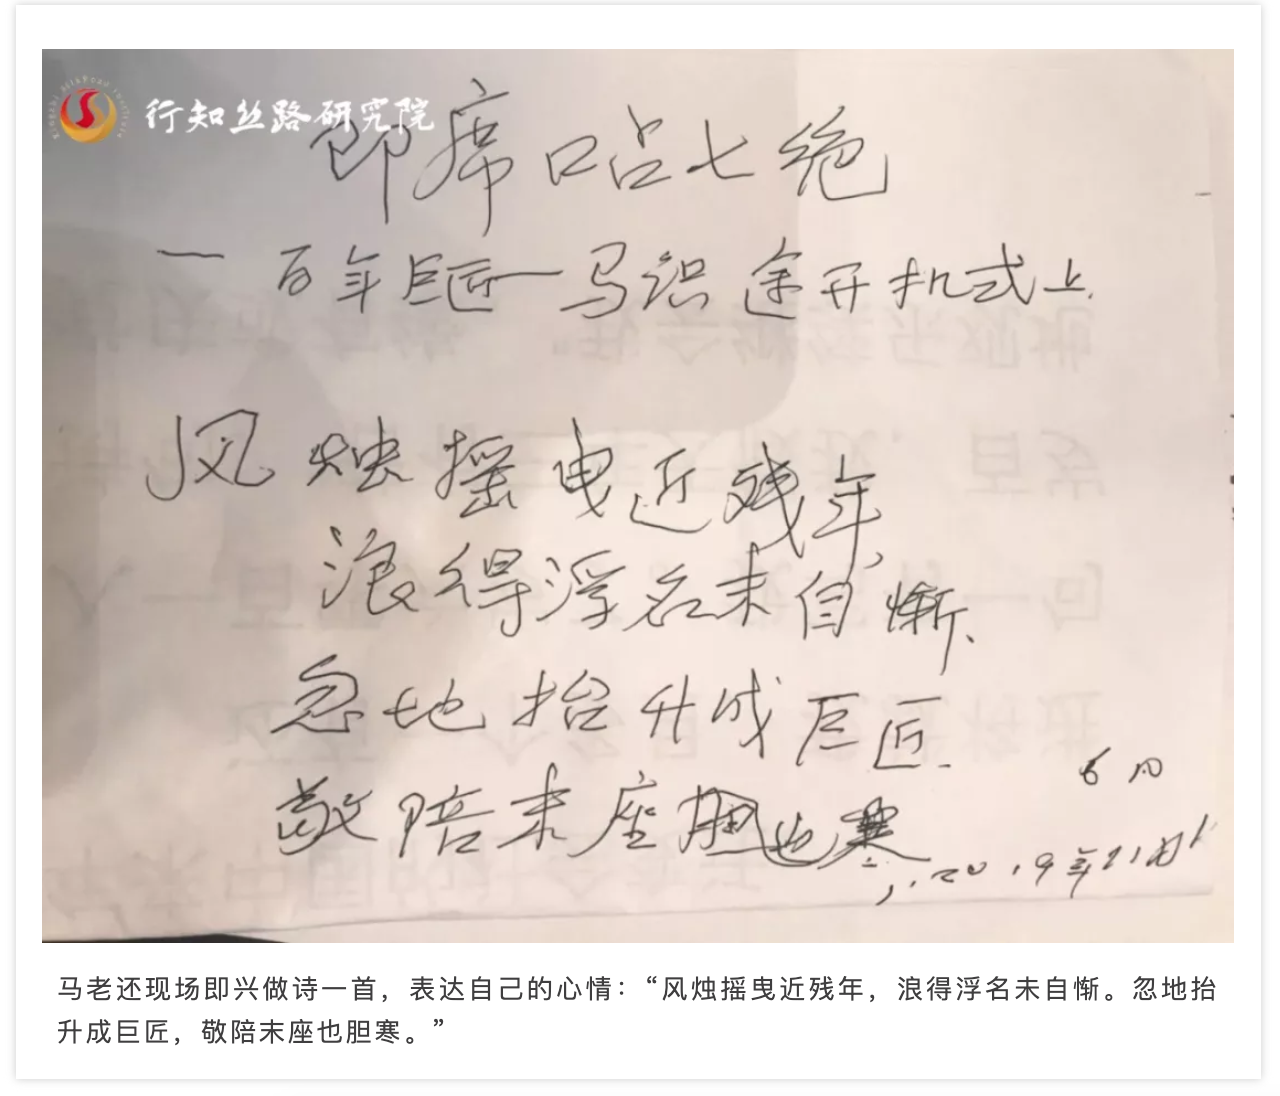 行知丝路研究院
即席口占七绝
一百年巨匠一马识途开机式上
风烛摇曳近残年,
浪得浮名未自惭、
忽地抬升成巨匠
敬陪末座胆也寒
2019年
马老还现场即兴做诗一首，表达自己的心情：“风烛摇曳近残年，浪得浮名未自惭。忽地抬
升成巨匠，敬陪末座也胆寒。”